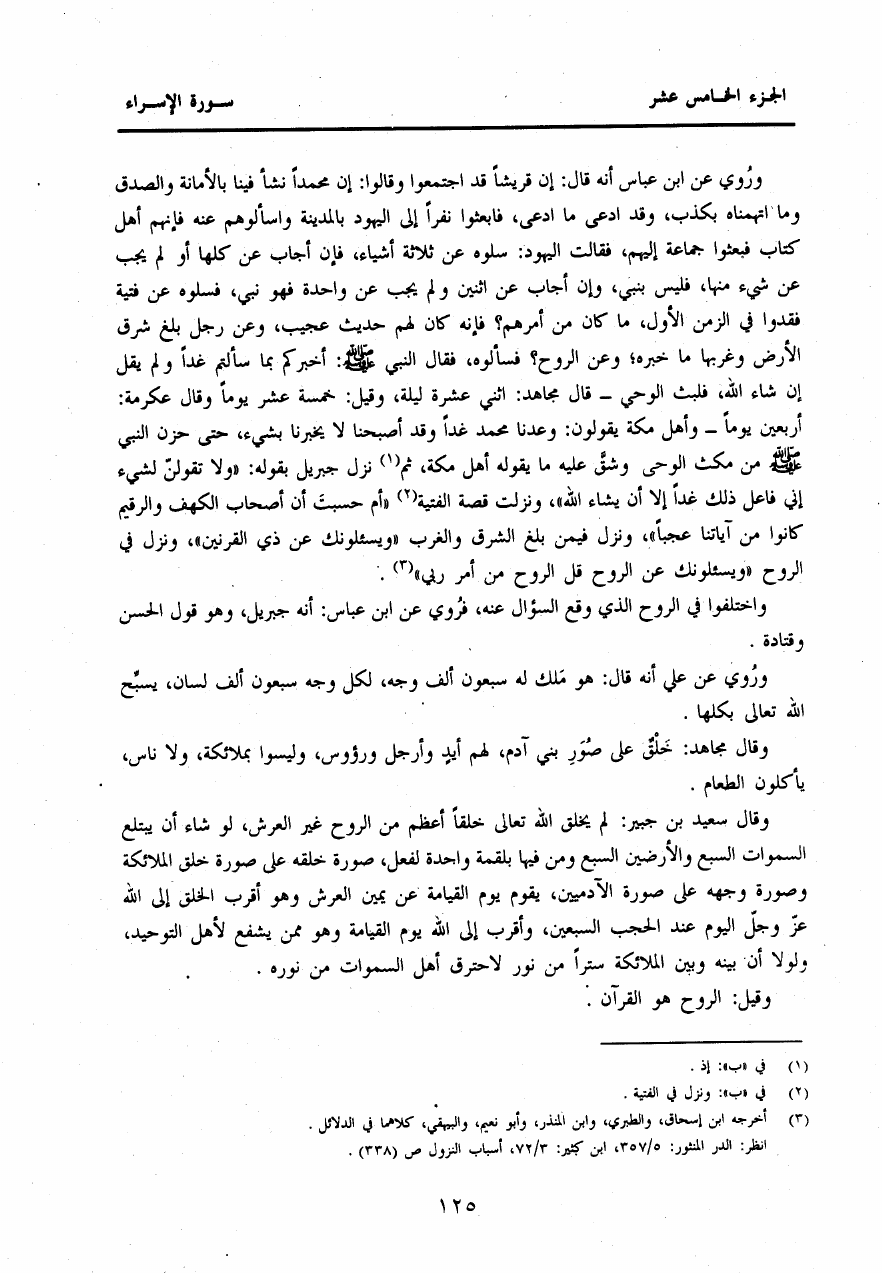 الجزء الخامس عشر
سورة الإسراء
ورُوي عن ابن عباس أنه قال: إن قريشاً قد اجتمعوا وقالوا: إن محمداً نشأ فينا بالأمانة والصدق
وما اتهمناه بكذب، وقد ادعى ما ادعى، فابعثوا نفراً إلى اليهود بالمدينة واسألوهم عنه فإنهم أهل
كتاب فبعثوا جماعة إليهم، فقالت اليهود: سلوه عن ثلاثة أشياء، فإن أجاب عن كلها أو لم يجب
عن شيء منها، فليس بنبي، وإن أجاب عن اثنين ولم يجب عن واحدة فهو نبي، فسلوه عن فتية
فقدوا في الزمن الأول، ما كان من أمرهم؟ فإنه كان لهم حديث عجيب، وعن رجل بلغ شرق
الأرض وغربها ما خبره؛ وعن الروح؟ فسألوه، فقال النبي ﷺ: أخبركم بما سألتم غداً ولم يقل
إن شاء الله، فلبث الوحي – قال مجاهد: اثني عشرة ليلة، وقيل: خمسة عشر يوماً وقال عكرمة:
أربعين يوماً – وأهل مكة يقولون: وعدنا محمد غداً وقد أصبحنا لا يخبرنا بشيء، حتى حزن النبي
ﷺ من مكث الوحى وشقَّ عليه ما يقوله أهل مكة، ثم(١) نزل جبريل بقوله: «ولا تقولنّ لشيء
إني فاعل ذلك غداً إلا أن يشاء الله»، ونزلت قصة الفتية(٢) «أم حسبتَ أن أصحاب الكهف والرقيم
كانوا من آياتنا عجباً»، ونزل فيمن بلغ الشرق والغرب «ويسئلونك عن ذي القرنين»، ونزل في
الروح «ويسئلونك عن الروح قل الروح من أمر ربي»(٣) .
واختلفوا في الروح الذي وقع السؤال عنه، فرُوي عن ابن عباس: أنه جبريل، وهو قول الحسن
وقتادة .
ورُوي عن علي أنه قال: هو مَلك له سبعون ألف وجه، لكل وجه سبعون ألف لسان، يسبِّح
الله تعالى بكلها .
وقال مجاهد: خَلْقٌ على صُوَرِ بني آدم، لهم أيدٍ وأرجل ورؤوس، وليسوا بملائكة، ولا ناس،
يأكلون الطعام .
وقال سعيد بن جبير: لم يخلق الله تعالى خلقاً أعظم من الروح غير العرش، لو شاء أن يبتلع
السموات السبع والأرضين السبع ومن فيها بلقمة واحدة لفعل، صورة خلقه على صورة خلق الملائكة
وصورة وجهه على صورة الآدميين، يقوم يوم القيامة عن يمين العرش وهو أقرب الخلق إلى الله
عزّ وجلّ اليوم عند الحجب السبعين، وأقرب إلى الله يوم القيامة وهو ممن يشفع لأهل التوحيد،
ولولا أن بينه وبين الملائكة ستراً من نور لاحترق أهل السموات من نوره .
وقيل: الروح هو القرآن .
(١) في «ب»: إذ .
(٢) في «ب»: ونزل في الفتية .
(٣) أخرجه ابن إسحاق، والطبري، وابن المنذر، وأبو نعيم، والبيهقي، كلاهما في الدلائل .
انظر: الدر المنثور: ٣٥٧/٥، ابن كثير: ٧٢/٣، أسباب النزول ص (٣٣٨) .
١٢٥